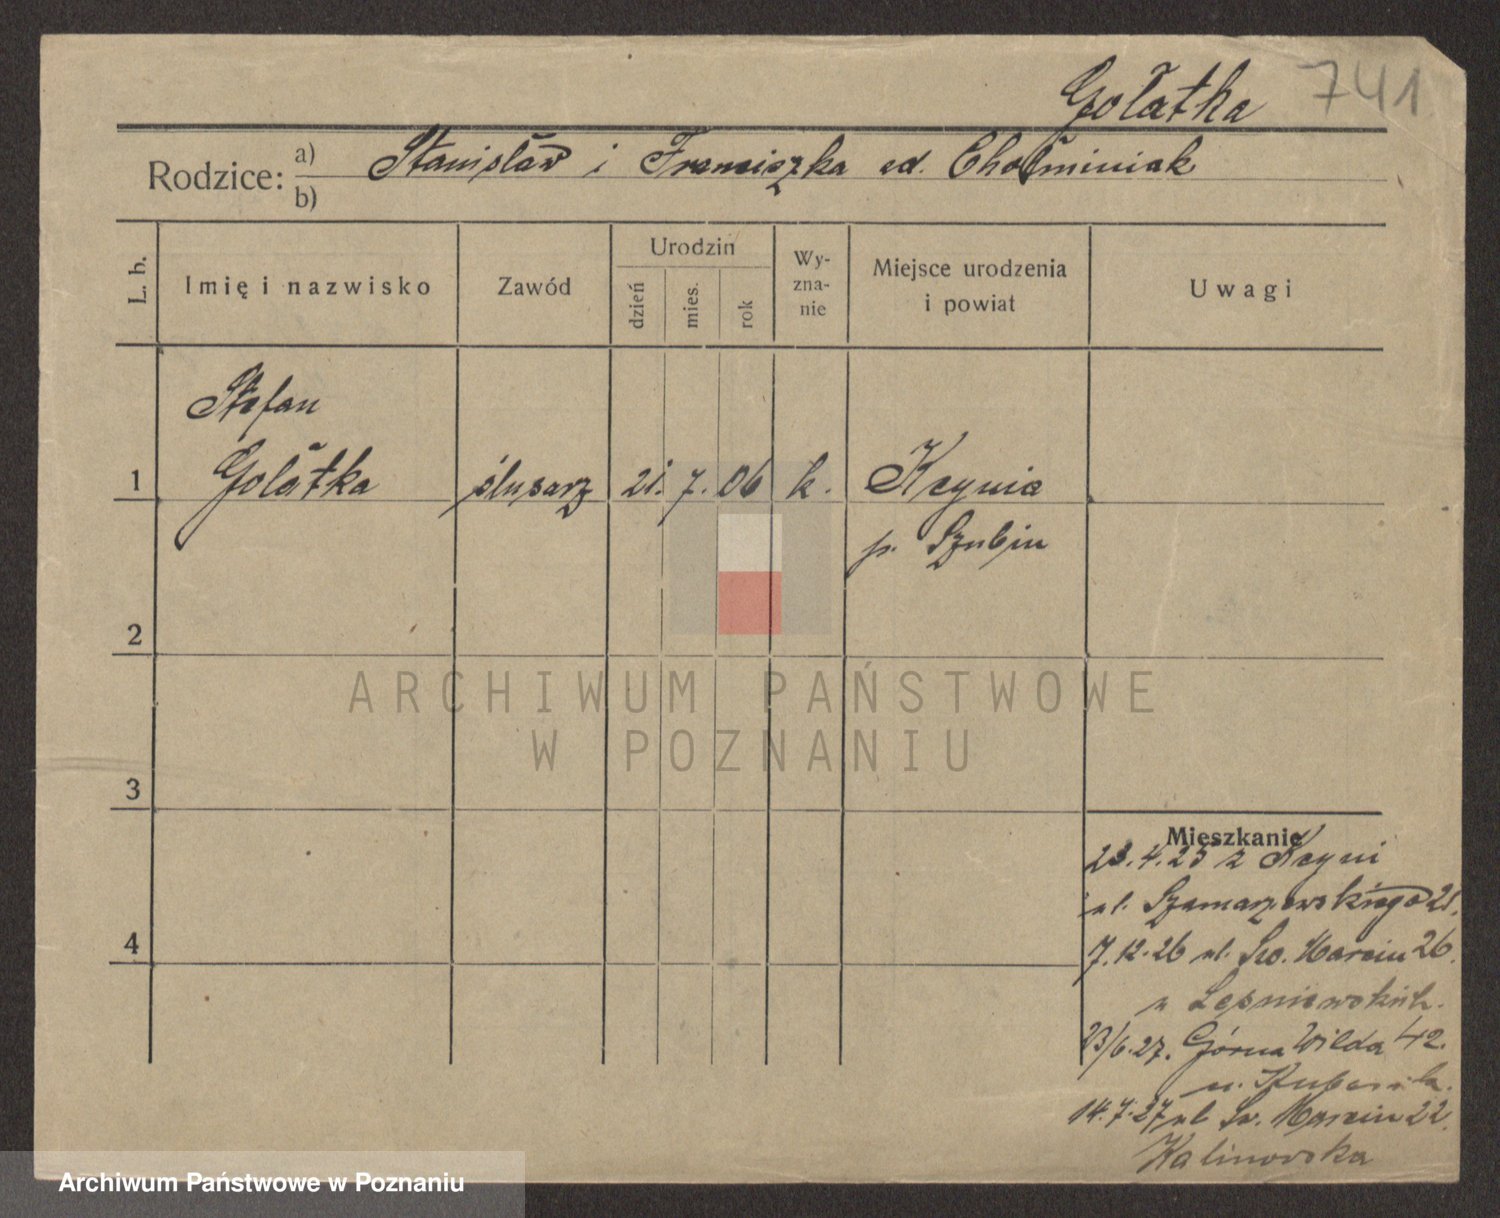 Gołatka 741
Rodzice: a) Stanisław i Franciszka
b)
L. b.
Imię i nazwisko
Zawód
Urodzin
dzień
mies.
rok
Wy-
zna-
nie
Miejsce urodzenia
i powiat
Uwagi
Stefan
1 Gołatka ślusarz 21. 7. 06 k. Kcynia
p. Szubin
2
ARCHIWUM PAŃSTWOWE
W POZNANIU
3
Mieszkanie
z Kcyni
ul. Szamarzewskiego 21.
7.12.26 ul. Św. Marcin 26.
23/6.27. Górna Wilda 42.
4
14.7.27 ul Św. Marcin 22.
Kalinowska
Archiwum Państwowe w Poznaniu